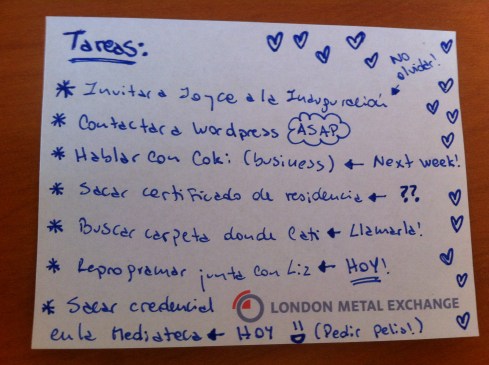 Tareas:
No olvidar!
* Invitar a Joyce a la Inauguración
* Contactar a wordpress ASAP
* Hablar con Coki (business) ← Next week!
* Sacar certificado de residencia ← ??
* Buscar carpeta donde Cati ← Llamarla!
* Reprogramar junta con Liz ← HOY!
* Sacar credencial
en la Mediateca ← HOY (Pedir pelis!)
LONDON METAL EXCHANGE